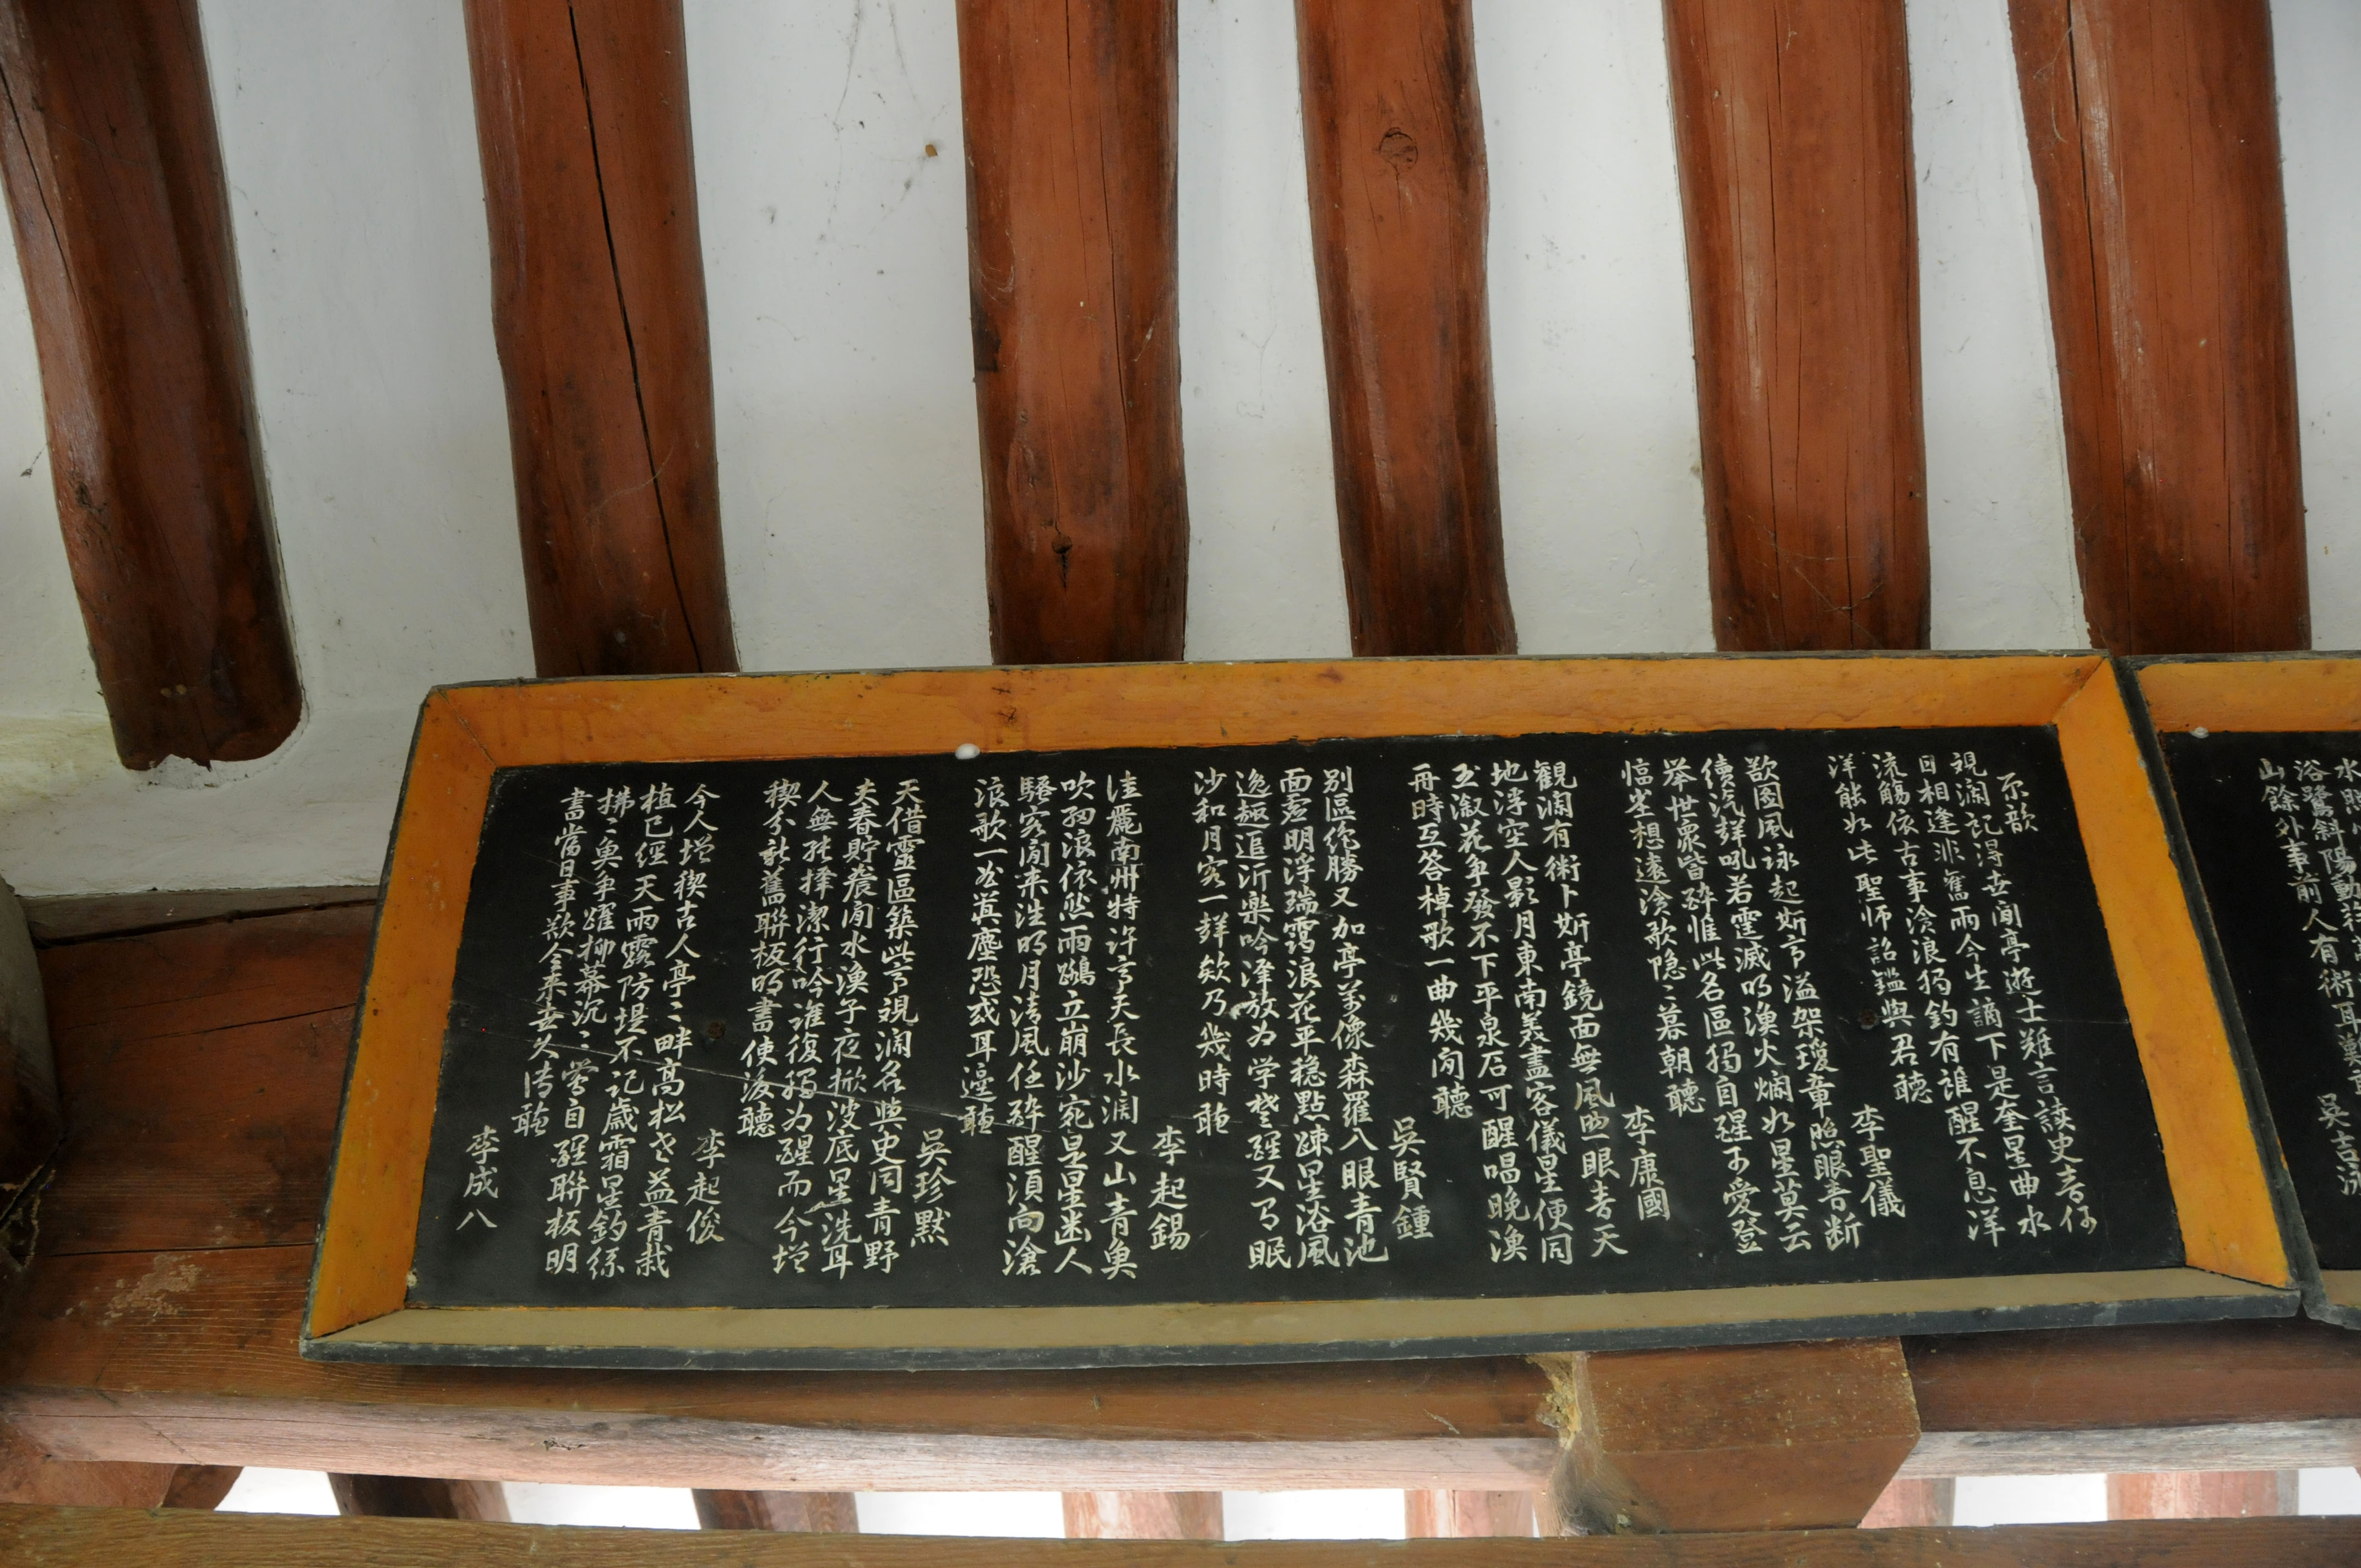 原韻
観瀾記得世間亭遊士難言讀史青伃
日相逢非舊雨今生謫下是奎星曲水
流觴依古事滄浪獨釣有誰醒不息洋
洋能如此聖师詔鑑與君聽
李聖儀
歆图風詠起斯亭溢架瓊章照眼青断
續汽詳吼若霆滅明漁火烱如星莫云
举世眾皆醉惟此名區獨自醒可愛登
臨坐想遠滄歌隐〻暮朝聽
李康國
観瀾有術卜斯亭鏡面無風照眼青天
地浮空人影月東南美盡客儀星便同
玉漵花争發不下平泉石可醒唱晚漁
舟時互答棹歌一曲幾间聽
吳賢鍾
别區絶勝又加亭萬像森羅八眼青池
面虚明浮瑞靄浪花平穏點踈星浴風
逸趣追沂樂吟澤放为学楚醒又乃眠
沙和月宿一詳欸乃幾時聽
李起錫
佳麗南州特許亭天長水濶又山青魚
吹細浪依然雨鷗立崩沙宛是星迷人
騷客间来浩明月清風任醉醒須向滄
浪歌一曲眞塵恐或耳邊聽
吳珍黙
天借靈區築此亭観瀾名與史同青野
夫春貯農间水漁子夜掀波底星洗耳
人無能擇潔行吟誰復獨为醒而今增
稧分社舊聯板明書使後聽
李起俊
今人增稧古人亭〻畔高松老益青栽
植已經天雨露防堤不記歲霜星釣絲
拂〻魚争躍柳幕沉〻鶯自醒聯板明
書當日事欺令来世久传聽
李成八
山餘外事前人有術耳難
吳吉泳